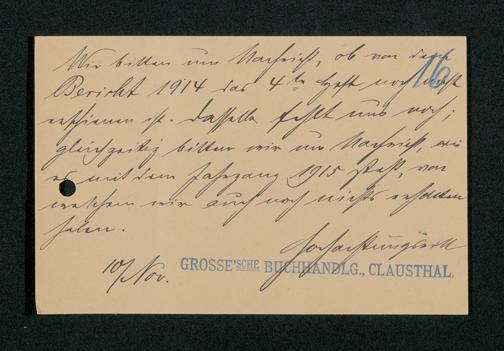 Wir bitten um Nachricht, ob von dem
Bericht 1914 das 4te Heft noch nicht
erschienen ist. Dasselbe fehlt uns noch;
gleichzeitig bitten wir um Nachricht, wie
es mit dem Jahrgang 1915 steht, von
welchem wir auch noch nichts erhalten
haben.
Hochachtungsvoll
10/Nov.
GROSSE'SCHE BUCHHANDLG., CLAUSTHAL.
16